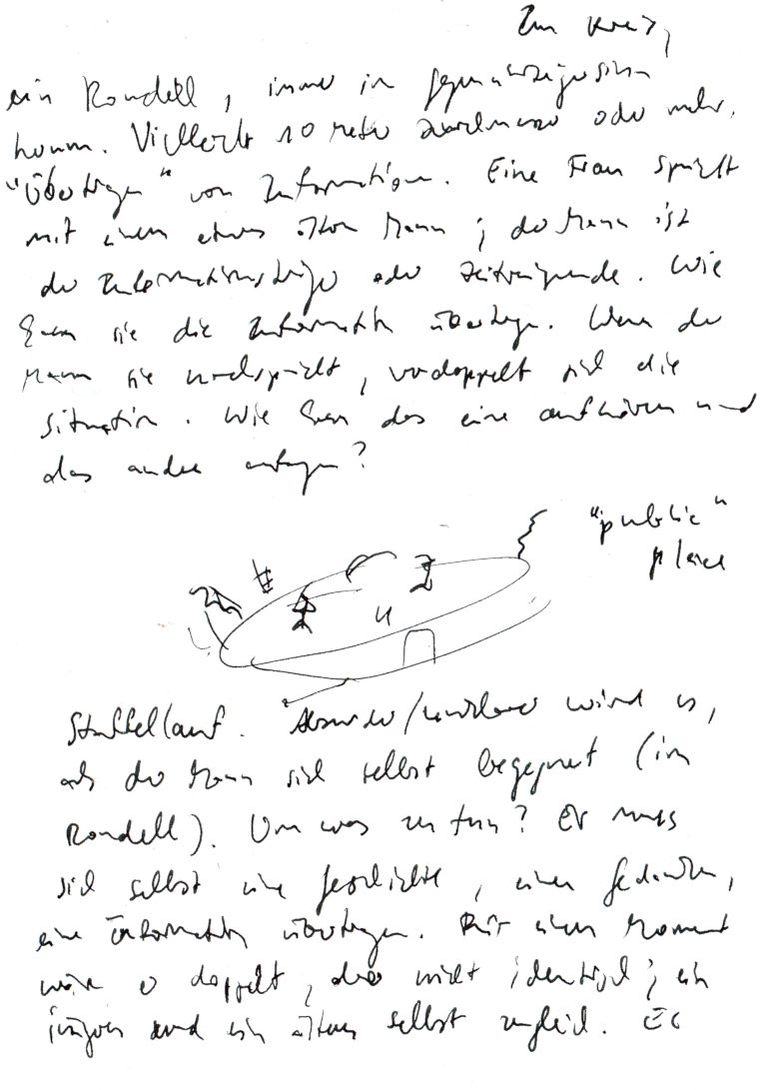 Im Kreis,
ein Rondell, immer im
kommen. Vielleicht 10 Meter oder mehr.
"Übertragen" von Information. Eine Frau spricht
mit einem etwas älteren Mann; der Mann ist
der Informationsträger oder Zeitreisende. Wie
kann sie die Information übertragen. Wenn der
Mann sie nachspricht, verdoppelt sich die
Situation. Wie kann das eine aufhören und
das andere anfangen?
"public"
place
Staffellauf. wird es,
als der Mann sich selbst begegnet (im
Rondell). Um was zu tun? Er muss
sich selbst eine Geschichte, einen Gedanken,
eine Information übertragen. Für einen Moment
wäre er doppelt, aber nicht identisch; ein
jüngeres und ein älteres selbst zugleich. Es